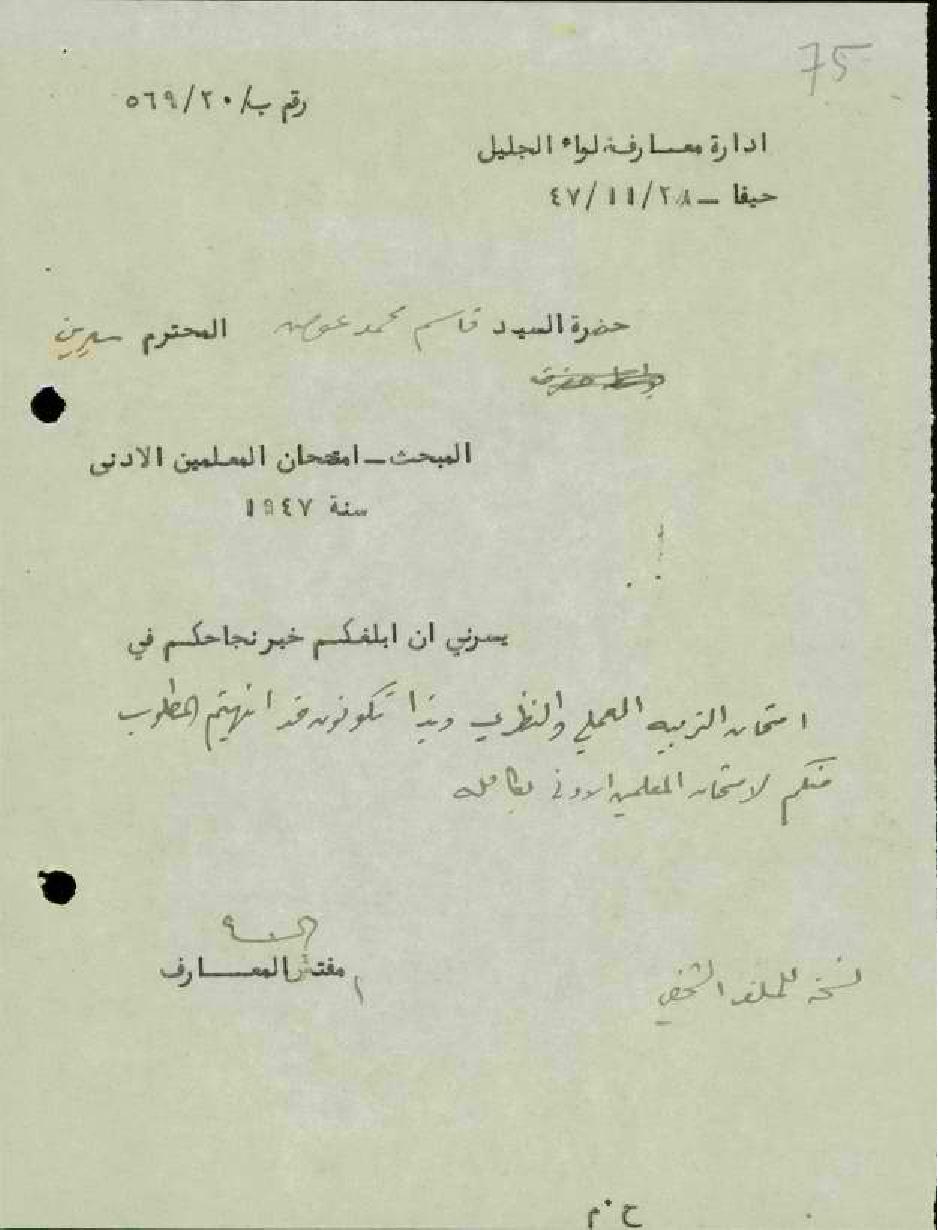 75
رقم ب/٢٠/٥٦٩
ادارة معارف لواء الجليل
حيفا – ٤٧/١١/٢٨
حضرة السيد قاسم محمد عوض المحترم سيرين
المبحث – امتحان المعلمين الادنى
سنة ١٩٤٧
يسرني ان ابلغكم خبر نجاحكم في
امتحان التربيه العملي والنظري وبذا تكونون قد انهيتم المطلوب
منكم لامتحان المعلمين الادنى بكامله
مفتش المعارف
نسخه للملف الشخصي
ح٠م